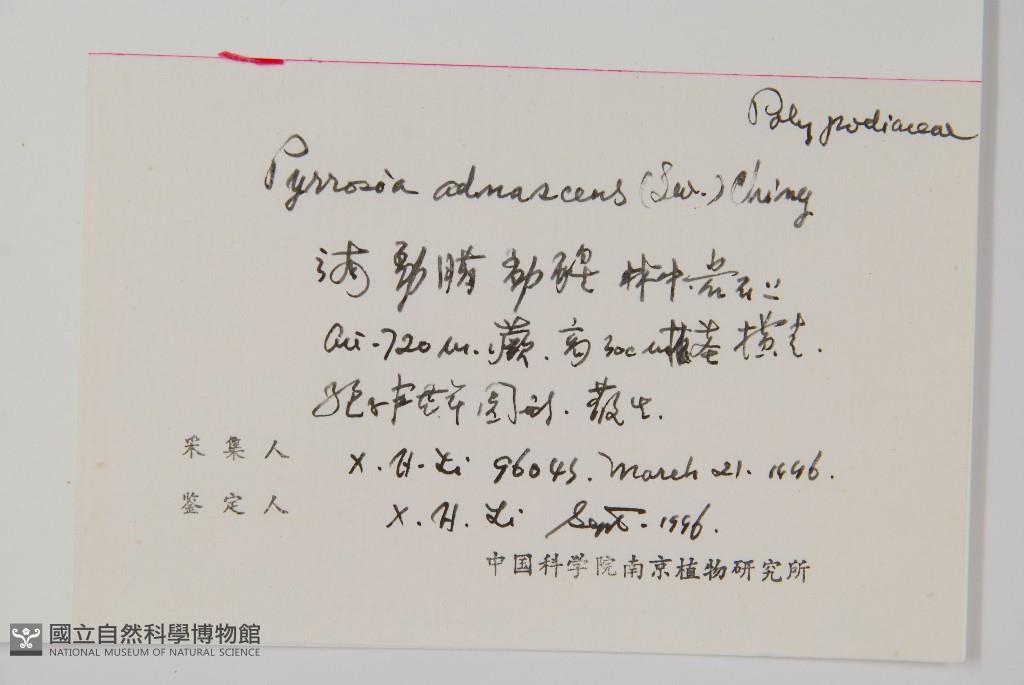 Polypodiaceae
Pyrrosia adnascens (Sw.) Ching
勐腊 林中岩石上
alt. 720 m. 蕨. 高30cm 横走.
孢子囊群圆形. 散生.
采集人 X. H. Li 96045. March 21. 1996.
鉴定人 X. H. Li Sept. 1996.
中国科学院南京植物研究所
國立自然科學博物館
NATIONAL MUSEUM OF NATURAL SCIENCE